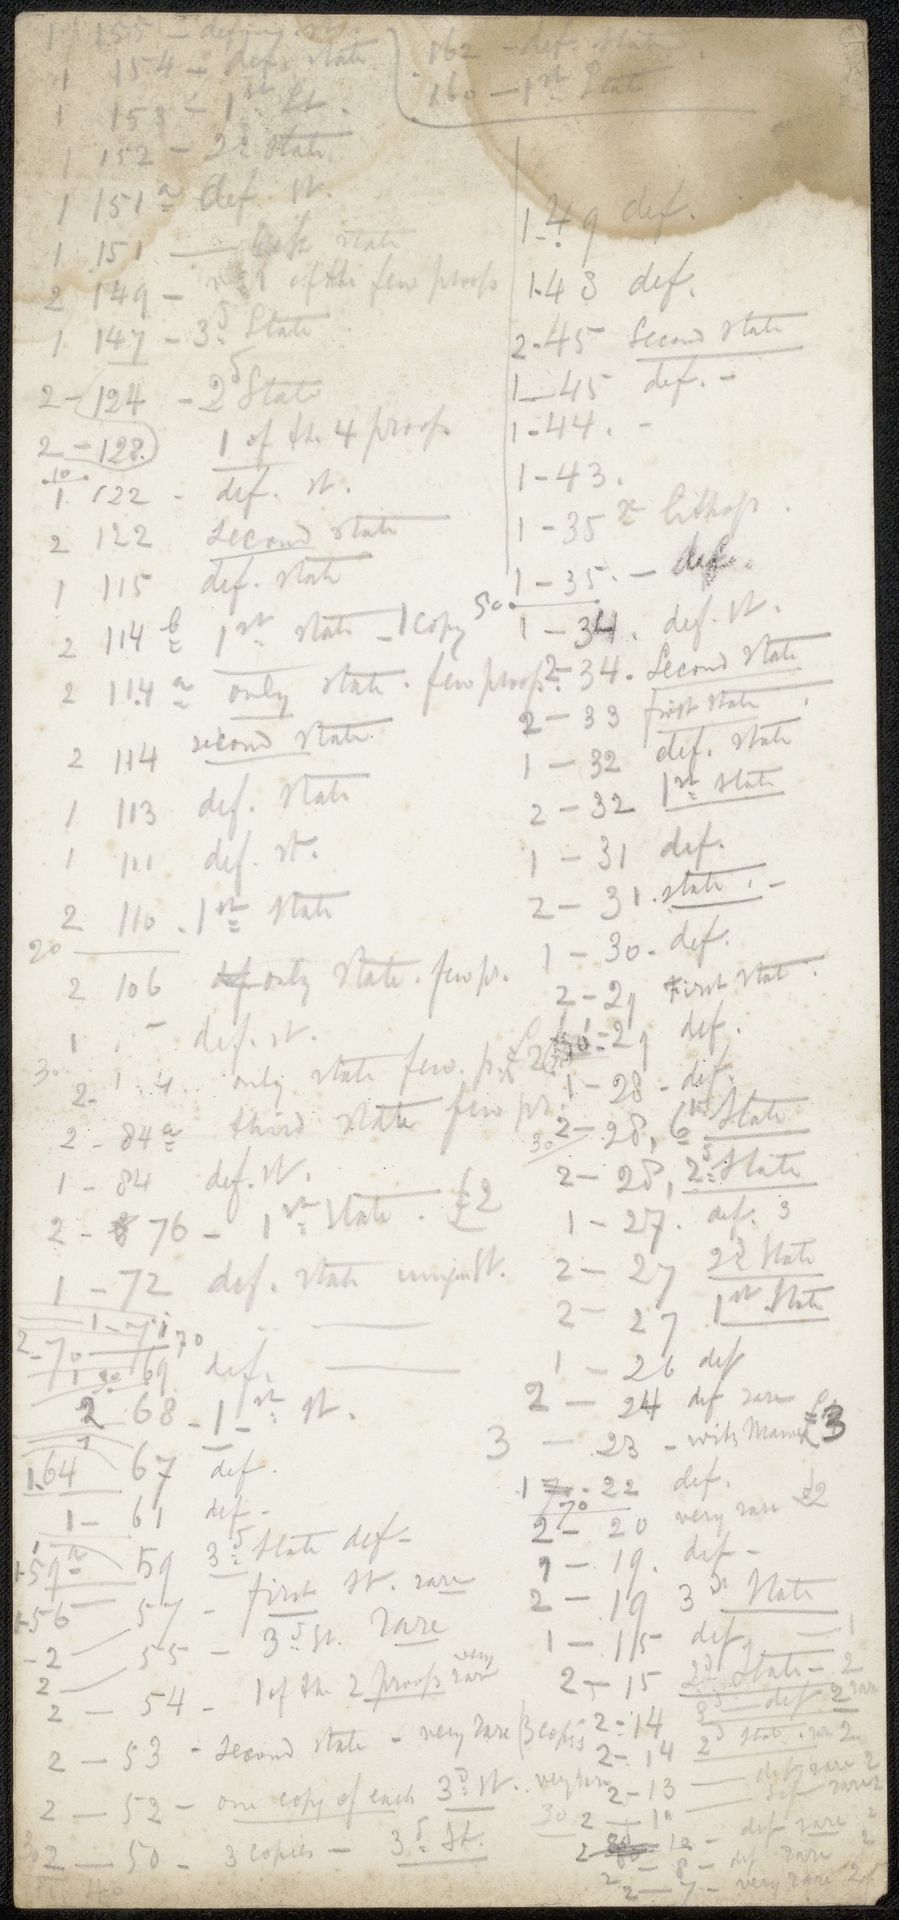 1 155 - def
1 154 - def. state
1 153 - 1st St.
1 152 - 2d state
1 151a def. st.
1 151 — state
2 149 - 1 of the few proofs
1 147 - 3d State
2 - 124 - 2d State
2 - 128. 1 of the 4 proofs
10
1 122 - def. st.
2 122 second state
1 115 def. state
2 114b 1st state - 1 copy
2 114a only state. few proofs.
2 114 second state
1 113 def. state
1 111 def. st.
2 110. 1st state
20
2 106 only state. few pr.
1 def. st.
30
2- only state few. pr. £2
2 - 84a third state few pr.
1 - 84 def. st.
2 - 76 - 1st State. £2
1 - 72 def. state
1 - 71
2 - 70 70
1 69 def.
2 68 - 1st st.
1.64 67 def.
1 - 61 def -
1 59a 59 3d State def -
1-56 57 - first st. rare
- 2 55 - 3d St. rare
2
2 — 54 - 1 of the 2 proofs very rare
2 — 53 - second state - very rare (3 copies
2 — 52 - one copy of each 3d st. very
2 — 50 - 3 copies - 3d St.
40
162 - def. State
160 - 1st State
1-49 def.
1-48 def.
2-45 Second state
1-45 def. -
1-44. -
1-43.
1-35a Lithogr.
1-35. — def.
50
1-34. def. st.
2-34. Second state
2-33 first state
1-32 def. state
2-32 1st state
1-31 def.
2-31. state. -
1-30. def.
2-29 First stat.
1-29 def.
1-28 - def.
2-28, 6th State
30
2-28, 2d State
1-27. def. 3
2-27 2d State
2-27 1st State
1-26 def
2 — 24 def rare
3 — 23 - with £3
1 - 22 def.
70
2 - 20 very rare £2
1 - 19. def -
2 - 19 3d State
1 - 15 def. — 1
2 - 15 2d State - 2
2 - 14 3d — def 2 rare
2 - 14 2d stat. rare 2
2 - 13 — def rare 2
30 2 — def rare 2
2 12 - def rare 2
2 - 8 - def rare 2
2 — 7 - very rare 2